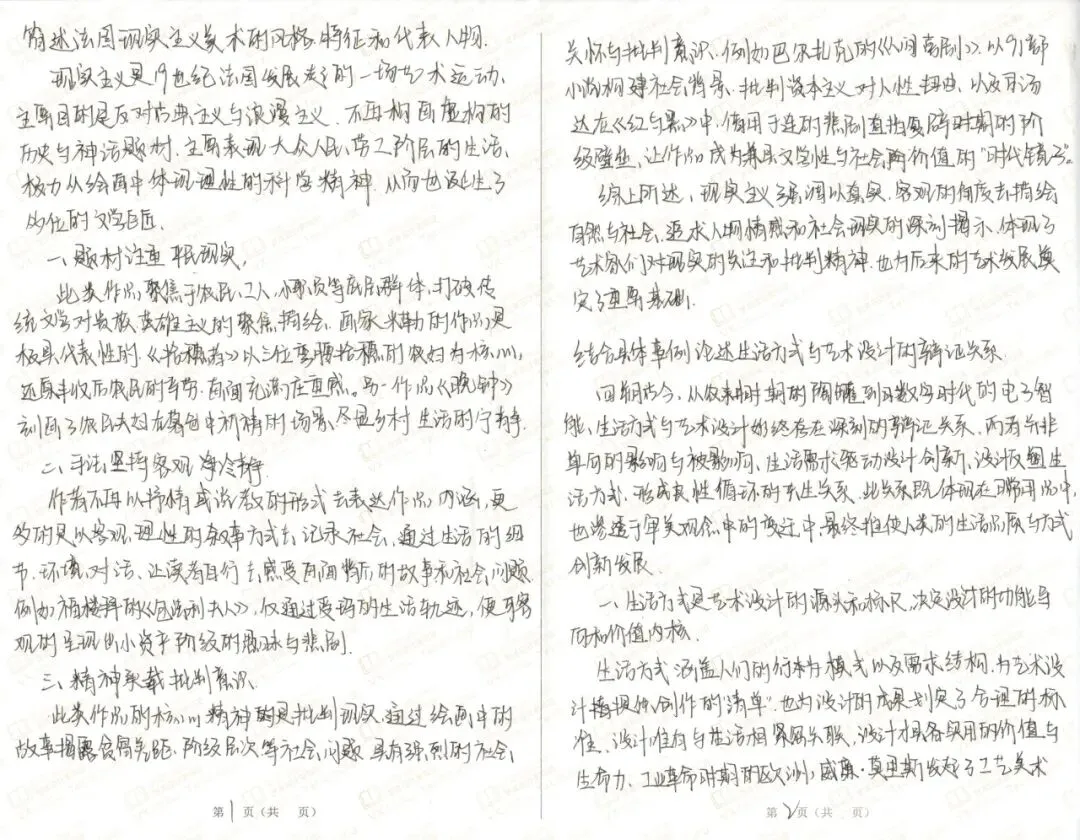 简述法国现实主义美术的风格、特征和代表人物.
现实主义是19世纪法国发展起来的一场艺术运动、
主要目的是反对古典主义与浪漫主义.不再刻画虚构的
历史与神话题材.主要表现大众人民、劳工阶层的生活、
极力从绘画中体现理性的科学精神.从而也诞生了
多位的文学巨匠.
一、题材注重平民现实.
此类作品聚焦于农民、工人、小职员等底层群体.打破传
统文学对贵族、英雄主义的聚焦描绘.画家米勒的作品是
极具代表性的.《拾穗者》以三位弯腰拾穗的农妇为核心.
还原丰收后农民的辛劳.画面充满庄重感。另一作品《晚钟》
刻画了农民夫妇在暮色中祈祷的场景.尽显乡村生活的宁静.
二、手法坚持客观冷静.
作者不再以抒情或说教的形式去表达作品内涵,更
多的是以客观、理性的叙事方式去记录社会,通过生活的细
节、环境、对话、让读者自行去感受画面背后的故事和社会问题.
例如福楼拜的《包法利夫人》,仅通过爱玛的生活轨迹,便可客
观的呈现出小资产阶级的与悲剧.
三、精神承载批判意识.
此类作品的核心精神的是批判现实.通过绘画中的
故事揭露贫富差距、阶级层次等社会问题.具有强烈的社会
第1页(共 页)
关怀与批判意识.例如巴尔扎克的《人间喜剧》.以91部
小说构建社会背景、批判资本主义对人性扭曲.以及司汤
达在《红与黑》中,借用于连的悲剧直指复辟时期的阶
级壁垒.让作品成为兼具文学性与社会两价值的"时代镜子"。
综上所述,现实主义强调以真实、客观的角度去描绘
自然与社会.追求人物情感和社会现实的深刻揭示.体现了
艺术家们对现实的关注和批判精神.也为后来的艺术发展奠
定了重要基础.
结合具体事例论述生活方式与艺术设计的辩证关系.
回朔古今,从仰韶时期的陶罐到数字时代的电子智
能、生活方式与艺术设计始终存在深刻的辩证关系.两者并非
单向的影响与被影响、生活需求驱动设计创新、设计反塑生
活方式.形成良性循环的共生关系.此关系既体现在日常用品中,
也渗透于审美观念中的变迁中.最终推使人类的生活品质与方式
创新发展.
一、生活方式是艺术设计的源头和标尺,决定设计的功能导
向和价值内核.
生活方式涵盖人们的行为模式以及需求结构.为艺术设
计提供创作的"清单".也为设计的成果划定了合理的标
准.设计唯有与生活相紧密关联、设计才具备实用的价值与
生命力.工业革命时期的欧洲,威廉·莫里斯发起了工艺美术
第2页(共 页)